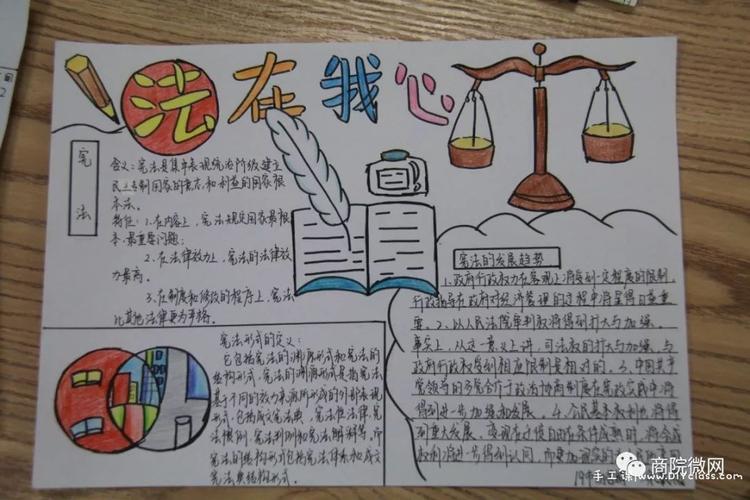 法在我心
宪法
含义：宪法是集中表现统治阶级建立
民主专制国家的意志和利益的国家根
本法。
特征：1、在内容上，宪法规定国家最根
本、最重要问题；
2、在法律效力上，宪法的法律效
力最高。
3、在制定和修改的程序上，宪法
比其他法律更为严格。
宪法形式的定义：
它包括宪法的渊源形式和宪法的
结构形式。宪法的渊源形式是指宪法
基于不同的效力来源所形成的外部表现
形式，包括成文宪法典、宪法性法律、宪
法惯例、宪法判例和宪法解释等，而
宪法的结构形式包括宪法体系和成文
宪法典结构形式。
宪法的发展趋势
1、政府行政权力在客观上将受到一定程度的限制，
行政指导在政府对经济管理的过程中将显得日益重
要。2、以人民法院审判权将得到扩大与加强。
事实上，从这一意义上讲，司法权的扩大与加强，与
政府行政权受到相应限制是相对的。3、中国共产
党领导的多党合作于政治协商制度在宪政实践中将
得到进一步加强和发展。4、公民基本权利也将得
到重大发展。
商院微网
手工课 www.DIYclass.com